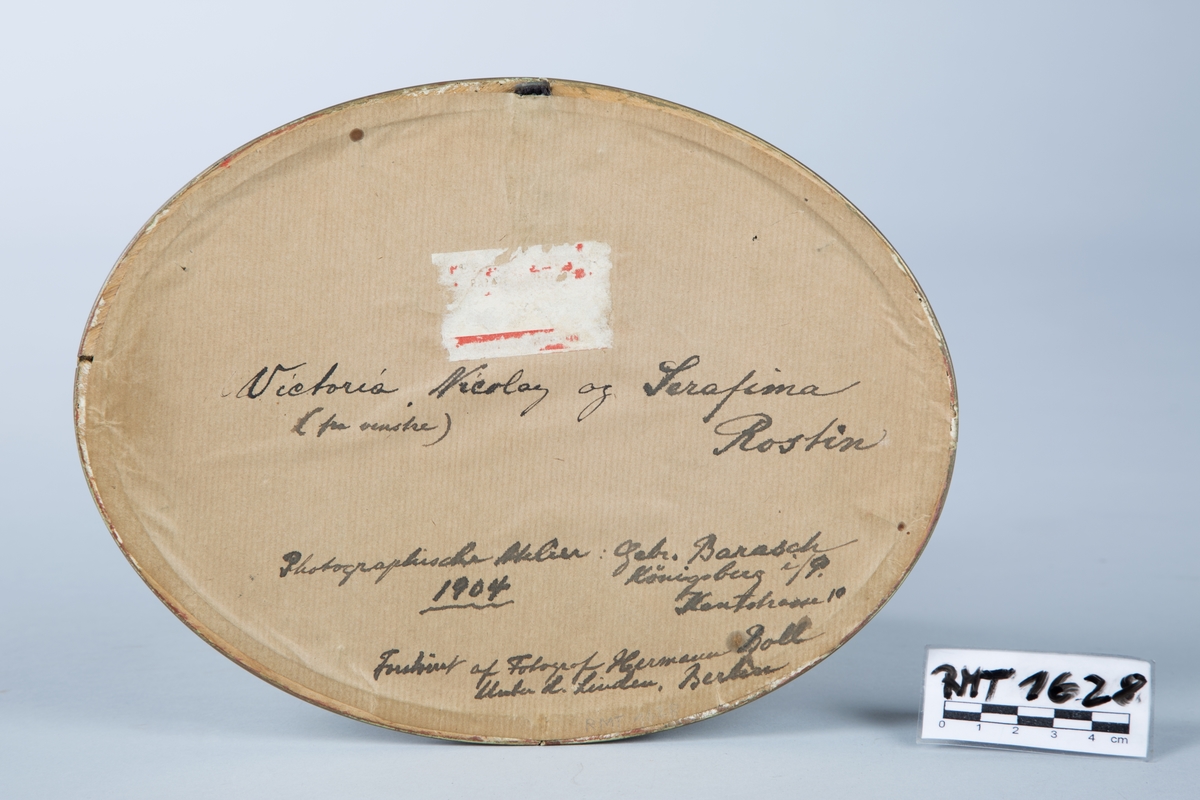 Victoria, Nicolay og Serafima
(fra venstre)
Rostin
Photographische Atelier: Gebr. Barasch
Königsberg i/P.
1904
Kantstrasse 10
af Fotograf Hermann Boll
Unter d. Linden, Berlin
RMT 1628
0 1 2 3 4 cm